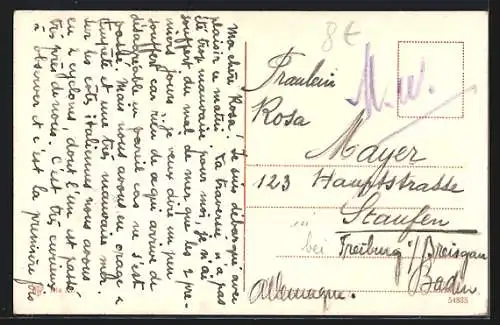 Ma chère Rosa! Je suis débarqué avec
plaisir ce matin. La traversée n'a pas
été très mauvaise pour moi, je n'ai
souffert du mal de mer que les 2 pre-
miers jours. Je veux dire un peu
souffert car rien de ce qui arrive de
désagréable en pareil cas ne s'est
passé. Mais nous avons eu orage,
tempête et une très mauvaise mer
sur les côtes italiennes nous avons
eu 2 cyclones, dont l'un est passé
très près de nous. C'est très curieux
à observer et c'est la première fois
8€
Fräulein
Rosa
Mayer
123 Hauptstrasse
Staufen
bei Freiburg i/Breisgau
Baden
Allemagne.
54835